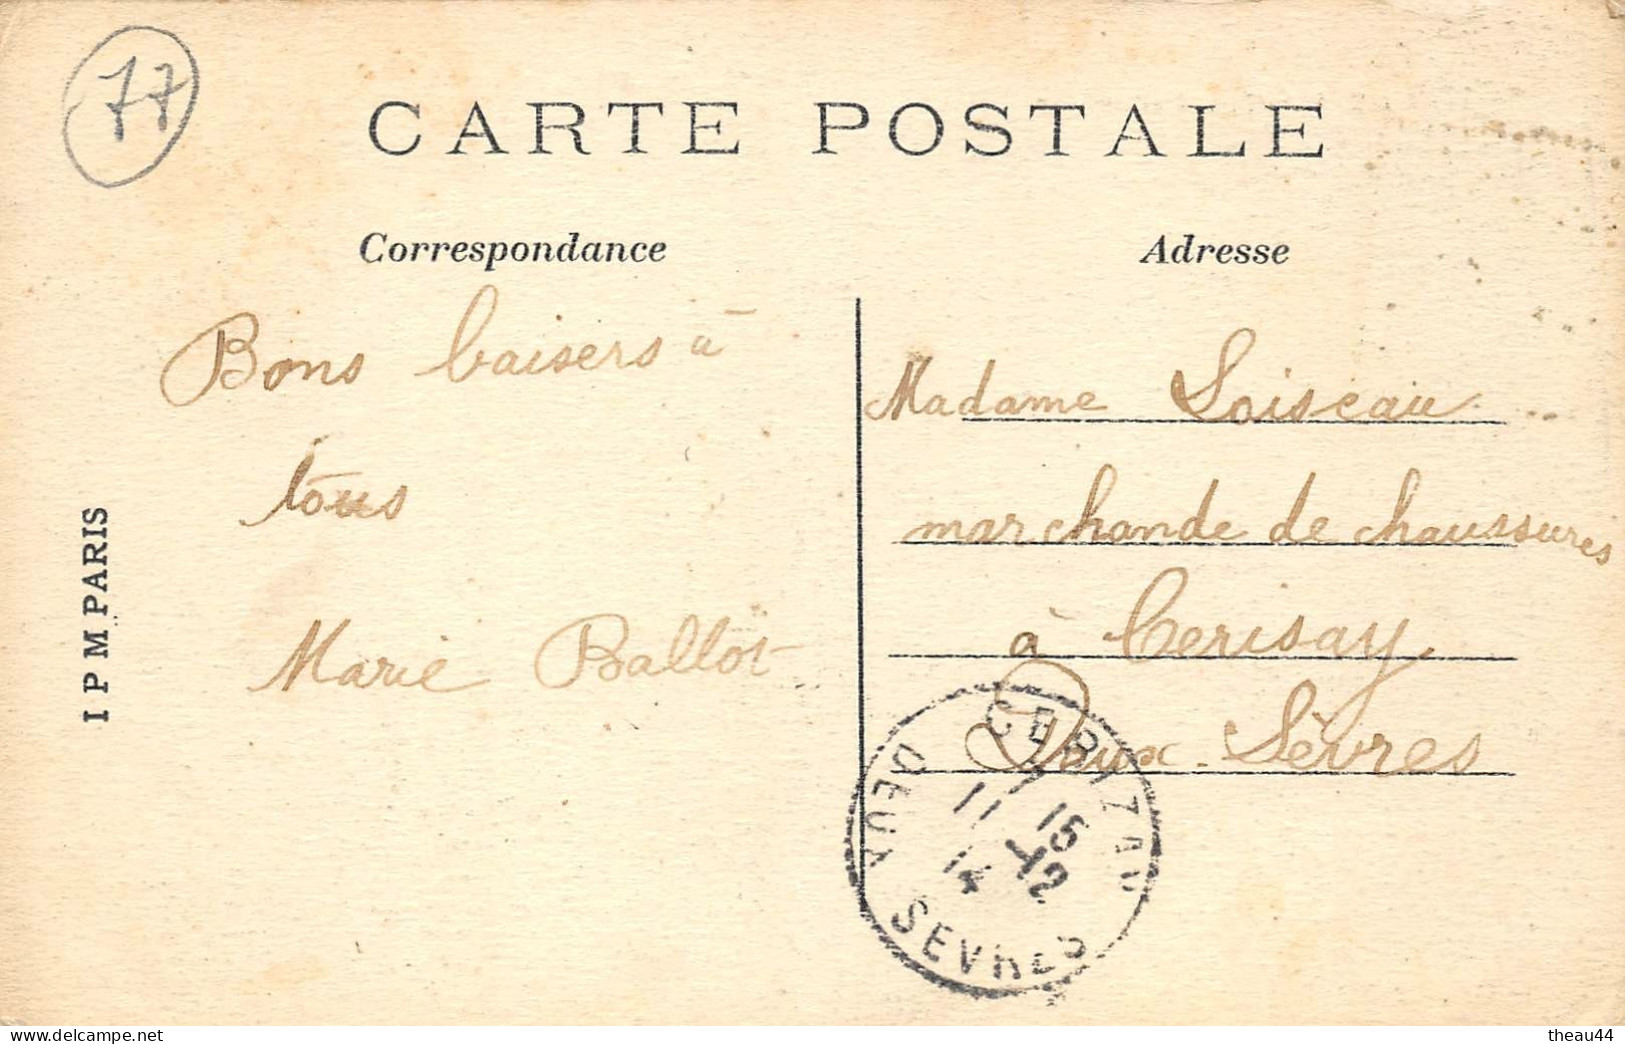 77
CARTE POSTALE
Correspondance
Adresse
Bons baisers à
tous
Marie Ballot
Madame Loiseau
marchande de chaussures
à Cerisay
Deux-Sèvres
I P M PARIS
CERIZAY
11 15
14 -12
DEUX SEVRES
theau44